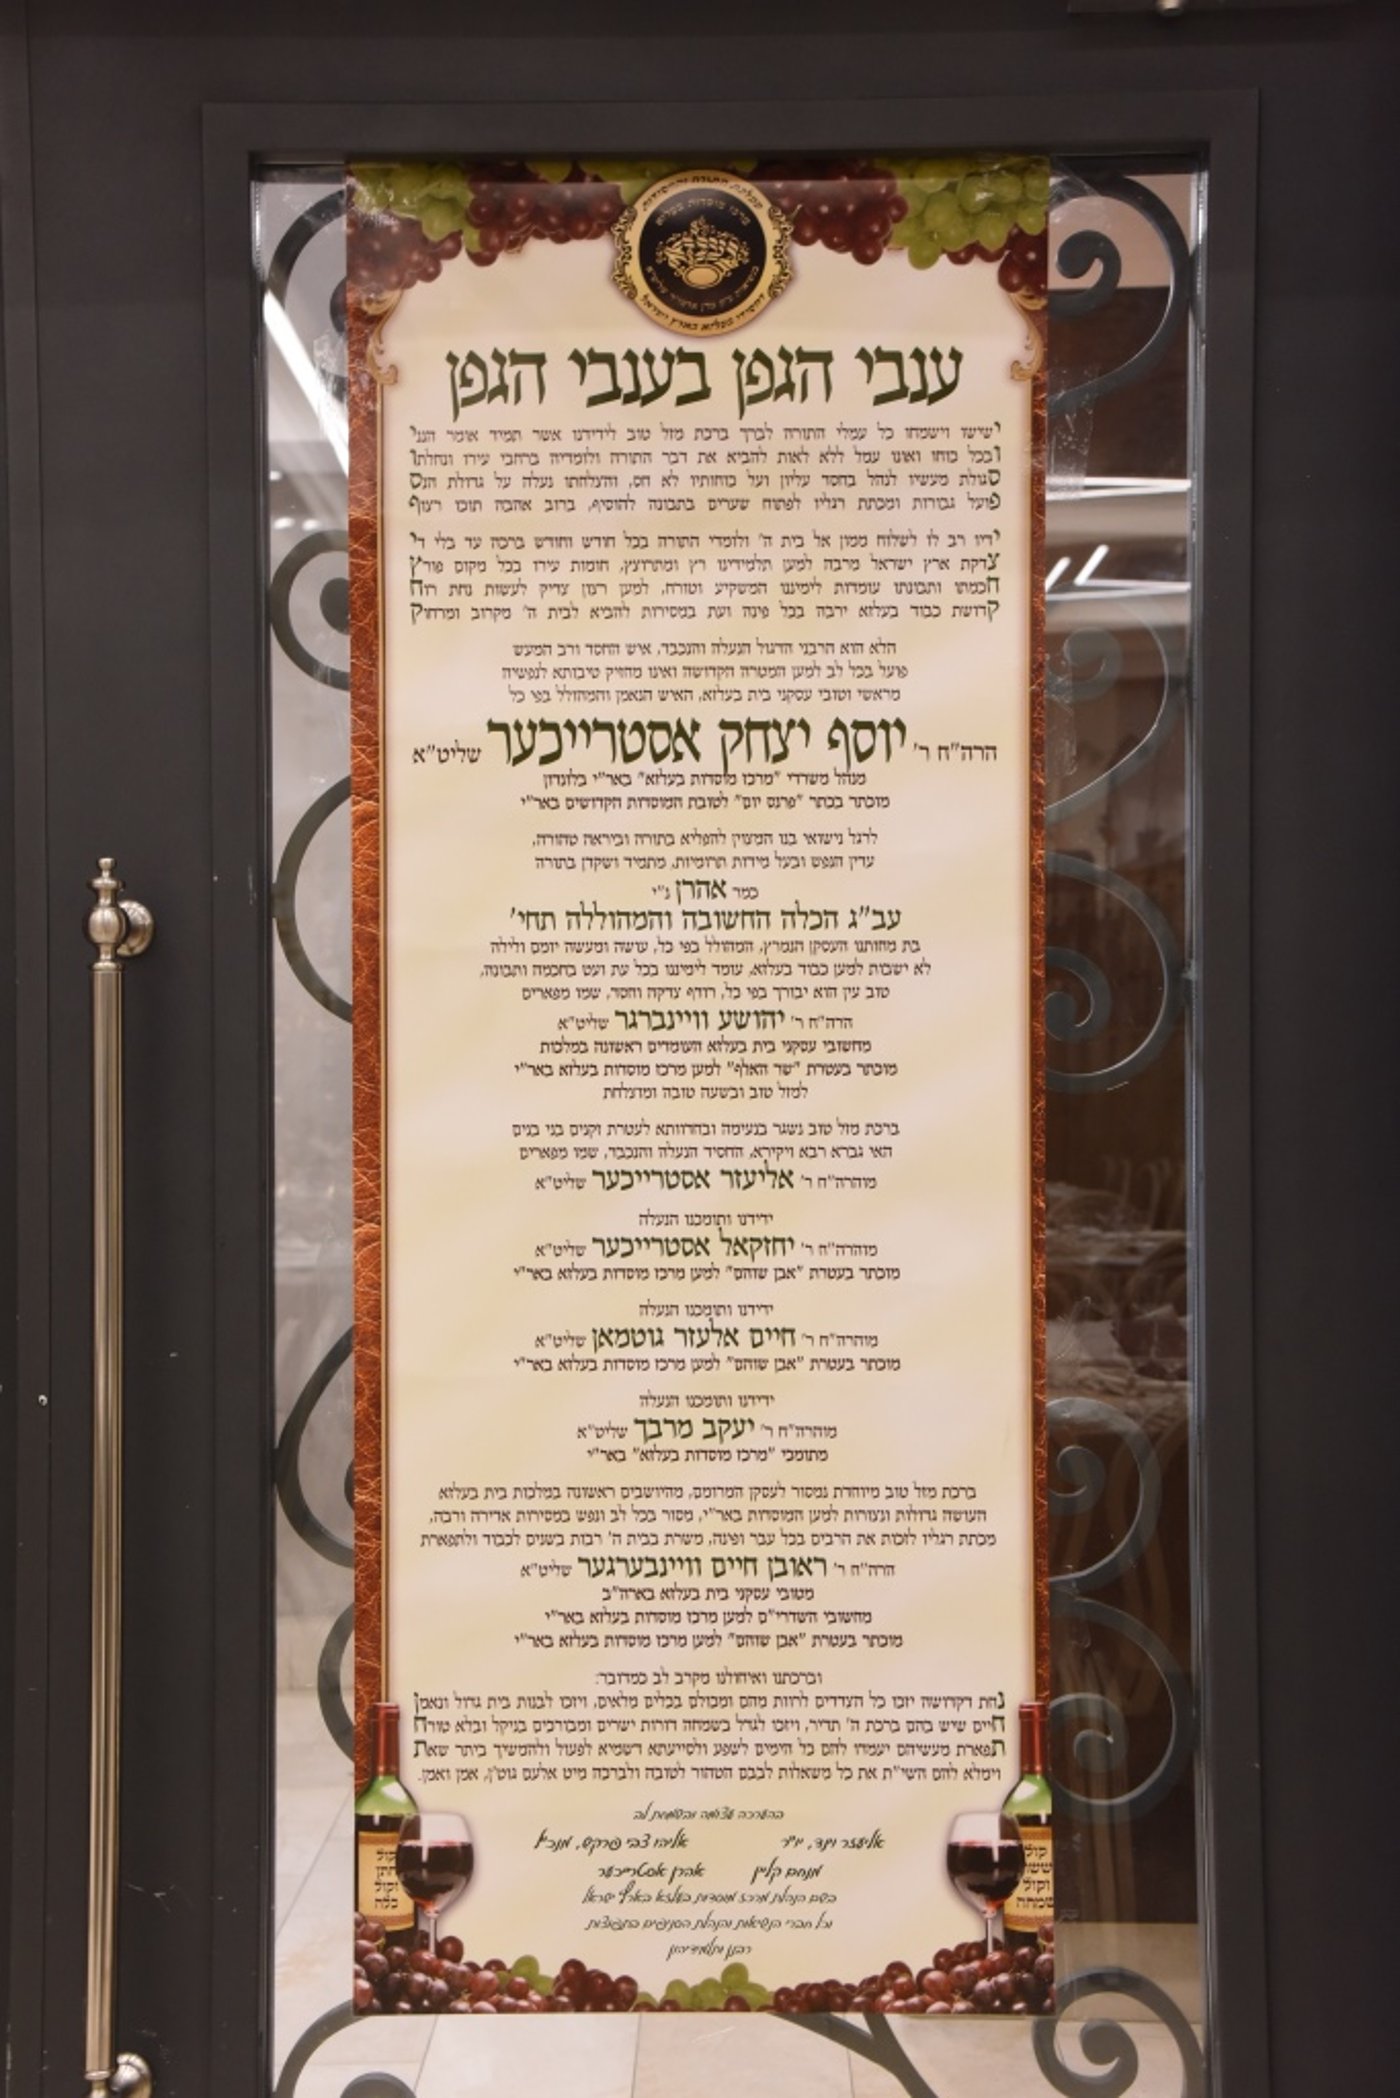 ממלכת התורה והחסידות
מרכז מוסדות בעלזא
בנשיאות כ"ק מרן אדמו"ר שליט"א
דחסידי בעלזא בארץ ישראל
ענבי הגפן בענבי הגפן
ישישו וישמחו כל עמלי התורה לברך ברכת מזל טוב לידידנו אשר תמיד אומר הנני
ובכל כוחו ואונו עמל ללא לאות להביא את דבר התורה ולומדיה ברחבי עירו ונחלתו
סגולת מעשיו לנהל בחסד עליון ועל כוחותיו לא חס, והצלחתו נעלה על גדולת הנס
פועל גבורות ומכתת רגליו לפתוח שערים בתבונה להוסיף, ברוב אהבה תוכו רצוף
ידיו רב לו לשלוח ממון אל בית ה' ולומדי התורה בכל חודש וחודש ברכה עד בלי די
צדקת ארץ ישראל מרבה למען תלמידינו רץ ומתרוצץ, חומות עירו בכל מקום פורץ
חכמתו ותבונתו עומדות לימיננו המשקיע וטורח, למען רצון צדיק לעשות נחת רוח
קדושת כבוד בעלזא ירבה בכל פינה ועת במסירות להביא לבית ה' מקרוב ומרחוק
הלא הוא הרבני הדגול הנעלה והנכבד, איש החסד ורב המעש
פועל בכל לב למען המטרה הקדושה ואינו מחזיק טיבותא לנפשיה
מראשי וטובי עסקני בית בעלזא, האיש הנאמן והמהולל בפי כל
הרה"ח ר' יוסף יצחק אסטרייכער שליט"א
מנהל משרדי "מרכז מוסדות בעלזא" באר"י בלונדון
מוכתר בכתר "פרנס יום" לטובת המוסדות הקדושים באר"י
לרגל נישואי בנו המצוין להפליא בתורה וביראה טהורה,
עדין הנפש ובעל מידות תרומיות, מתמיד ושקדן בתורה
כמר אהרן נ"י
עב"ג הכלה החשובה והמהוללה תחי'
בת מחותנו העסקן הנמרץ, המהולל בפי כל, עושה ומעשה יומם ולילה
לא ישבות למען כבוד בעלזא, עומד לימיננו בכל עת ועט בחכמה ותבונה,
טוב עין הוא יבורך בפי כל, רודף צדקה וחסד, שמו מפארים
הרה"ח ר' יהושע וויינברגר שליט"א
מחשובי עסקני בית בעלזא העומדים ראשונה במלכות
מוכתר בעטרת "שר האלף" למען מרכז מוסדות בעלזא באר"י
למזל טוב ובשעה טובה ומוצלחת
ברכת מזל טוב נשגר בנעימה ובחדוותא לעטרת זקנים בני בנים
האי גברא רבא ויקירא, החסיד הנעלה והנכבד, שמו מפארים
מוהרה"ח ר' אליעזר אסטרייכער שליט"א
ידידנו ותומכנו הנעלה
מוהרה"ח ר' יחזקאל אסטרייכער שליט"א
מוכתר בעטרת "אבן שוהם" למען מרכז מוסדות בעלזא באר"י
ידידנו ותומכנו הנעלה
מוהרה"ח ר' חיים אלעזר גוטמאן שליט"א
מוכתר בעטרת "אבן שוהם" למען מרכז מוסדות בעלזא באר"י
ידידנו ותומכנו הנעלה
מוהרה"ח ר' יעקב מרבך שליט"א
מתומכי "מרכז מוסדות בעלזא" באר"י
ברכת מזל טוב מיוחדת נמסור לעסקן המרומם, מהיושבים ראשונה במלכות בית בעלזא
העושה גדולות ונצורות למען המוסדות באר"י, מסור בכל לב ונפש במסירות אדירה ורבה,
מכתת רגליו לזכות את הרבים בכל עבר ופינה, משרת בבית ה' רבות בשנים לכבוד ולתפארת
הרה"ח ר' ראובן חיים וויינבערגער שליט"א
מטובי עסקני בית בעלזא בארה"ב
מחשובי השדרי"ם למען מרכז מוסדות בעלזא באר"י
מוכתר בעטרת "אבן שוהם" למען מרכז מוסדות בעלזא באר"י
וברכתנו ואיחולנו מקרב לב כמדובר:
נחת דקדושה יזכו כל הצדדים לרוות מהם ומכולם בכלים מלאים, ויזכו לבנות בית גדול ונאמן
חיים שיש בהם ברכת ה' תדיר, ויזכו לגדל בשמחה דורות ישרים ומבורכים בניקל ובלא טורח
תפארת מעשיהם יעמדו להם כל הימים לשפע ולסייעתא דשמיא לפעול ולהמשיך ביתר שאת
וימלא להם השי"ת את כל משאלות לבבם הטהור לטובה ולברכה מיט אלעם גוט'ן, אמן ואמן.
בהערכה עצומה ובשמחת לב
אליעזר וינד, יו"ר אליהו צבי פורקש, מנכ"ל
מנחם קליין אהרן אסטרייכער
בשם הנהלת מרכז מוסדות בעלזא בארץ ישראל
וכל חברי הנשיאות והנהלת הסניפים בתפוצות
רבנן ותלמידיהון
קול
חתן
וקול
כלה
קול
ששון
וקול
שמחה